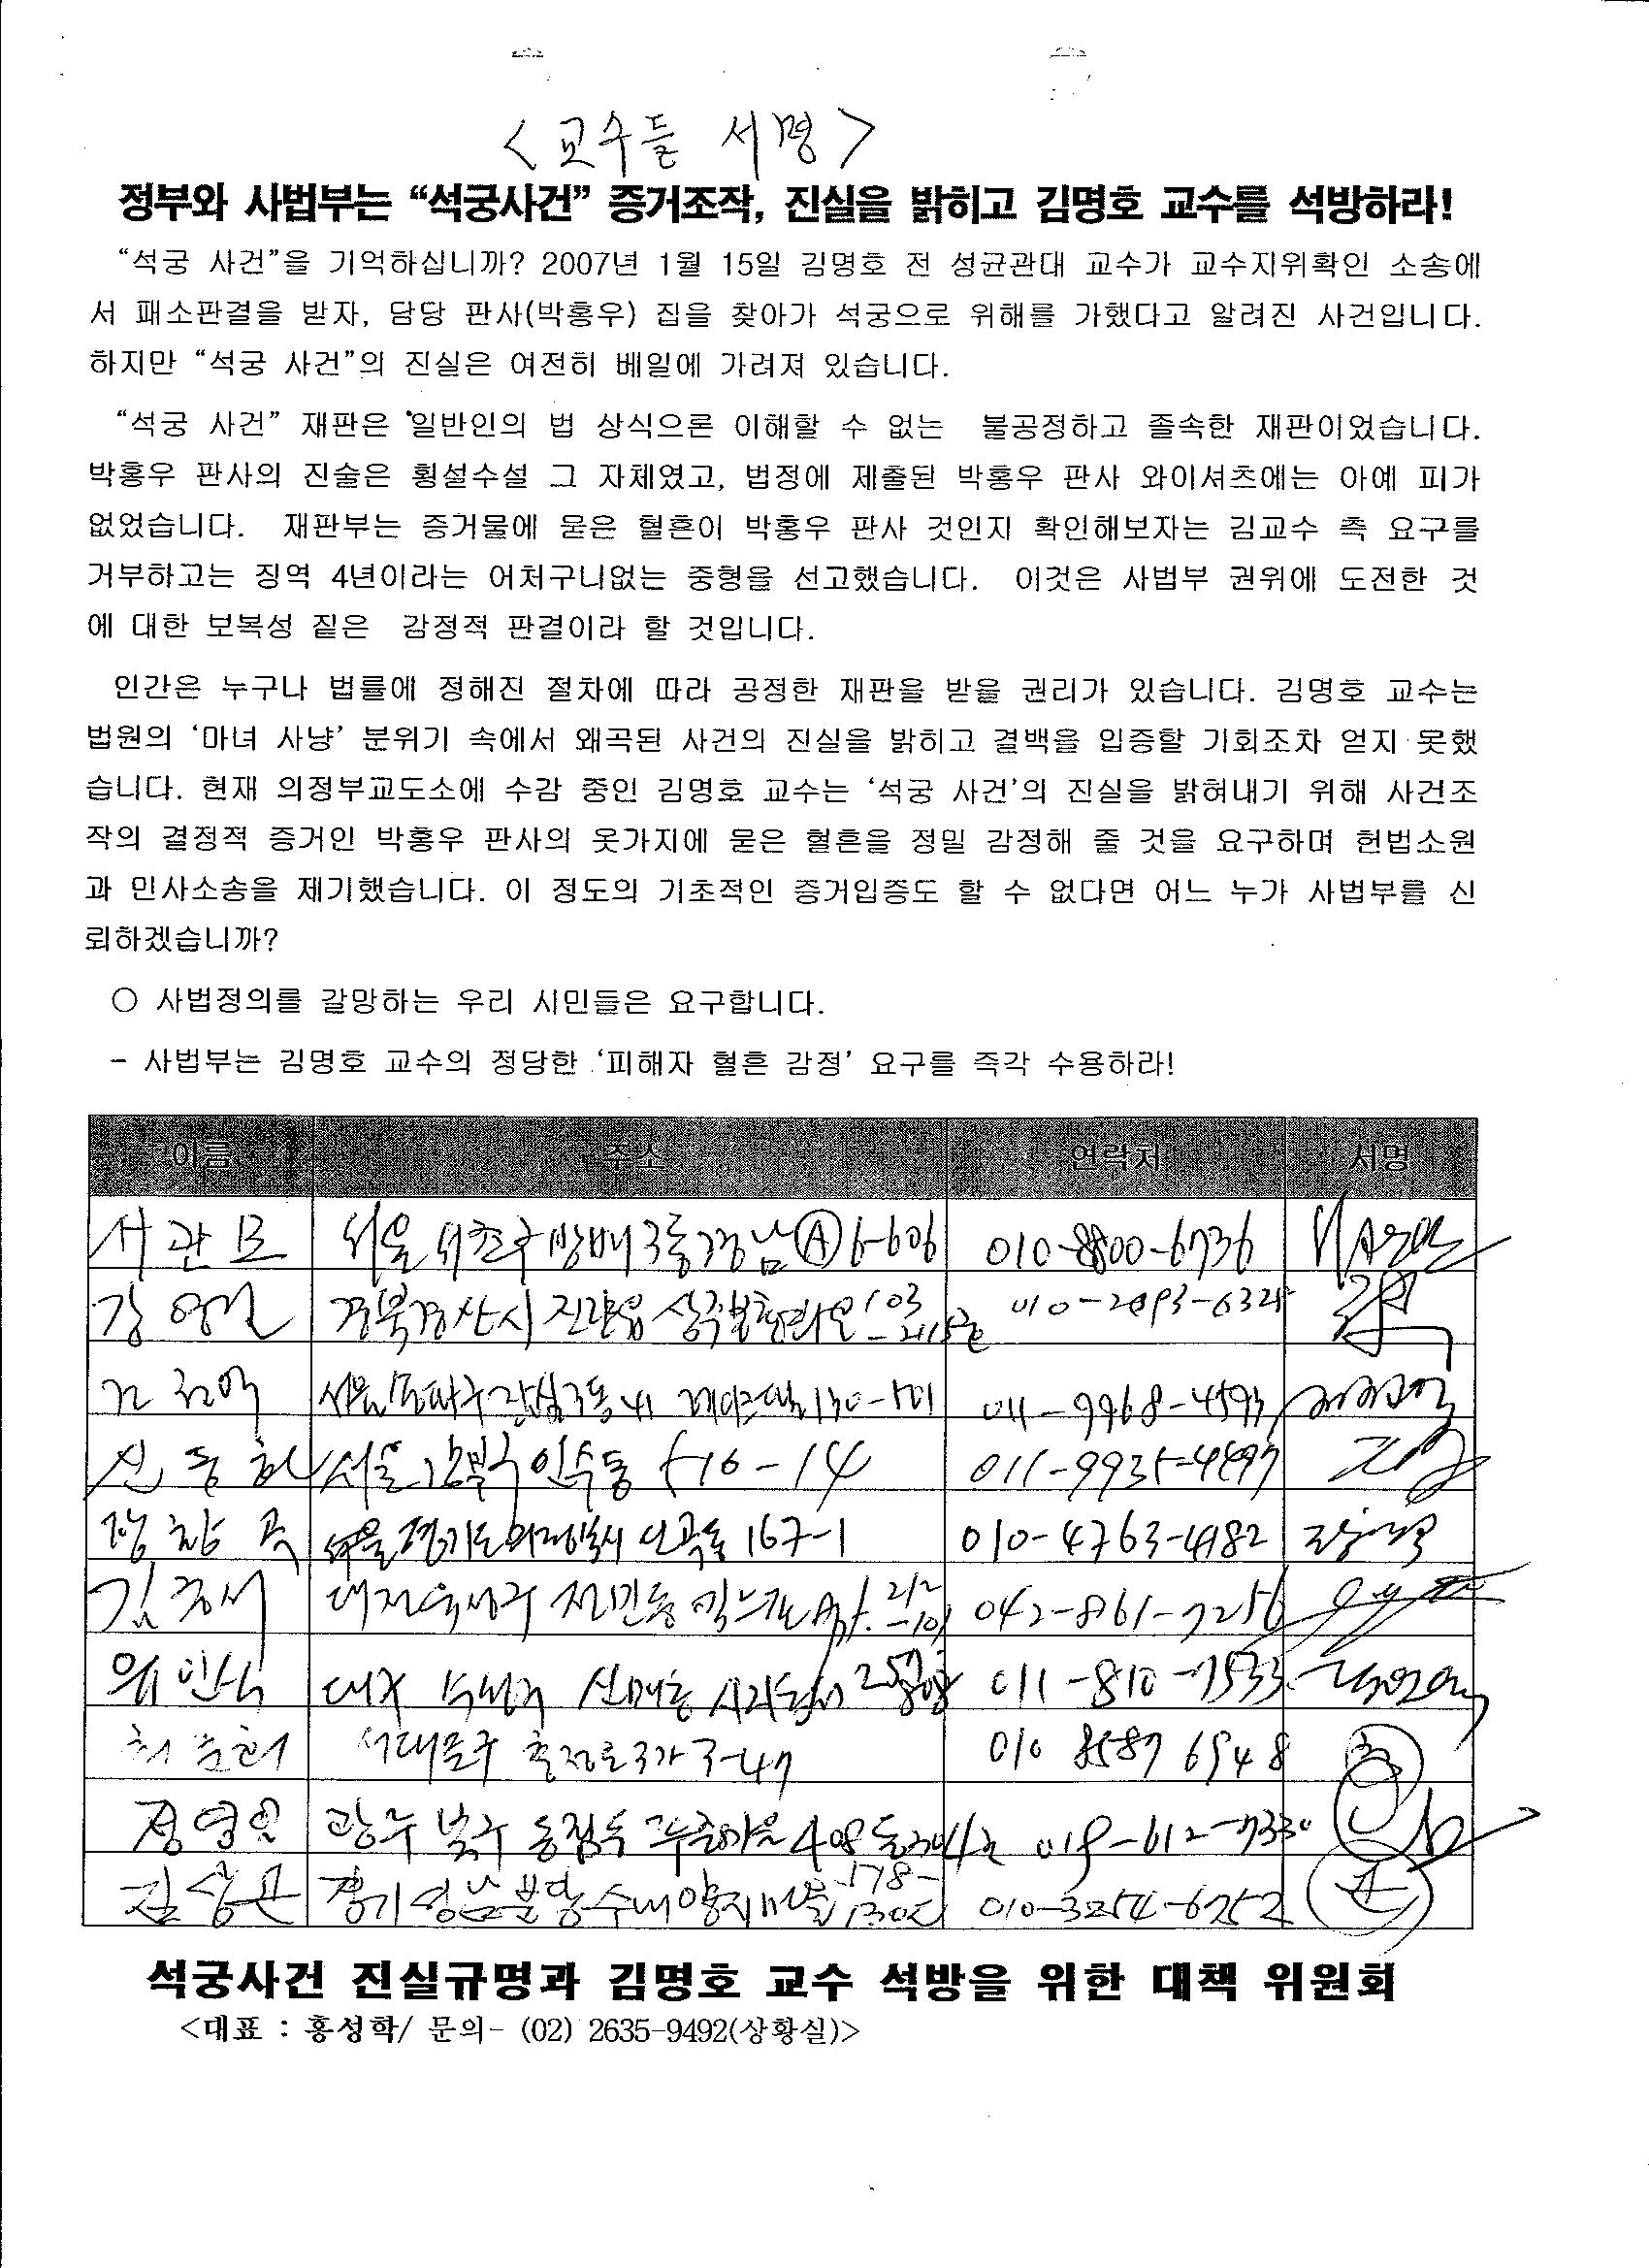 <교수들 서명>
정부와 사법부는 “석궁사건” 증거조작, 진실을 밝히고 김명호 교수를 석방하라!
“석궁 사건”을 기억하십니까? 2007년 1월 15일 김명호 전 성균관대 교수가 교수지위확인 소송에
서 패소판결을 받자, 담당 판사(박홍우) 집을 찾아가 석궁으로 위해를 가했다고 알려진 사건입니다.
하지만 “석궁 사건”의 진실은 여전히 베일에 가려져 있습니다.
“석궁 사건” 재판은 일반인의 법 상식으론 이해할 수 없는 불공정하고 졸속한 재판이었습니다.
박홍우 판사의 진술은 횡설수설 그 자체였고, 법정에 제출된 박홍우 판사 와이셔츠에는 아예 피가
없었습니다. 재판부는 증거물에 묻은 혈흔이 박홍우 판사 것인지 확인해보자는 김교수 측 요구를
거부하고는 징역 4년이라는 어처구니없는 중형을 선고했습니다. 이것은 사법부 권위에 도전한 것
에 대한 보복성 짙은 감정적 판결이라 할 것입니다.
인간은 누구나 법률에 정해진 절차에 따라 공정한 재판을 받을 권리가 있습니다. 김명호 교수는
법원의 ‘마녀 사냥’ 분위기 속에서 왜곡된 사건의 진실을 밝히고 결백을 입증할 기회조차 얻지 못했
습니다. 현재 의정부교도소에 수감 중인 김명호 교수는 ‘석궁 사건’의 진실을 밝혀내기 위해 사건조
작의 결정적 증거인 박홍우 판사의 옷가지에 묻은 혈흔을 정밀 감정해 줄 것을 요구하며 헌법소원
과 민사소송을 제기했습니다. 이 정도의 기초적인 증거입증도 할 수 없다면 어느 누가 사법부를 신
뢰하겠습니까?
○ 사법정의를 갈망하는 우리 시민들은 요구합니다.
- 사법부는 김명호 교수의 정당한 ‘피해자 혈흔 감정’ 요구를 즉각 수용하라!
이름 주소 연락처 서명
서관모 서울 서초구 방배3동 경남Ⓐ 6-606 010-8800-6736
강영걸 경북 경산시 진량읍 103 010-
서울 송파구 130-501 011-9968-4593
신동하 서울 강북구 인수동 516-14
경기도 의정부시 167-1 010-4763-4182
김종서 대전 유성구 전민동 Apt. 042-861-7256
대구 수성구 신매동 011-810-7533
서대문구 충정로3가 3-47 010 8587 6948
정영일 광주 북구 408동
김상곤 경기 성남 분당 수내 양지마을 010-3254-6252
석궁사건 진실규명과 김명호 교수 석방을 위한 대책 위원회
<대표 : 홍성학/ 문의- (02) 2635-9492(상황실)>